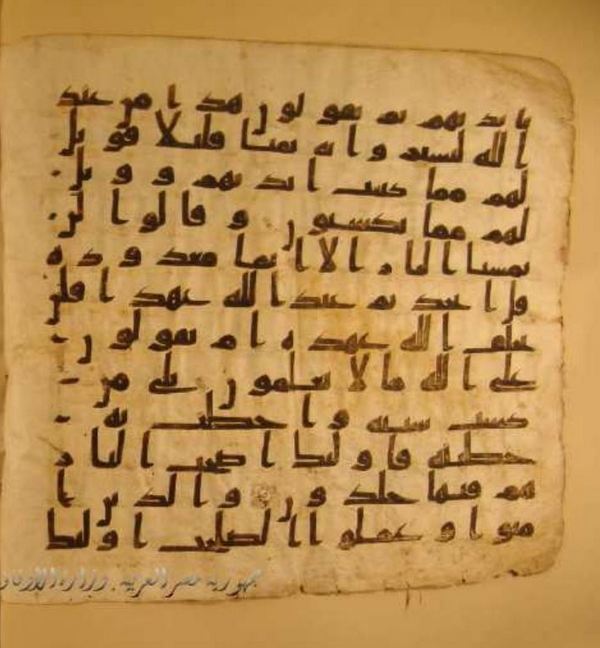 بايديهم ثم يقولون هذا من عند
الله ليشتروا به ثمنا قليلا فويل
لهم مما كتبت ايديهم وويل
لهم مما يكسبون وقالوا لن
تمسنا النار الا اياما معدوده
قل اتخذتم عند الله عهدا فلن
يخلف الله عهده ام تقولون
على الله ما لا تعلمون بلى من
كسب سيئه واحطت به
خطيته فاوليك اصحب النار
هم فيها خلدون والذين ا
منوا وعملوا الصلحت اوليك
جمهورية مصر العربية. وزارة الأوقاف